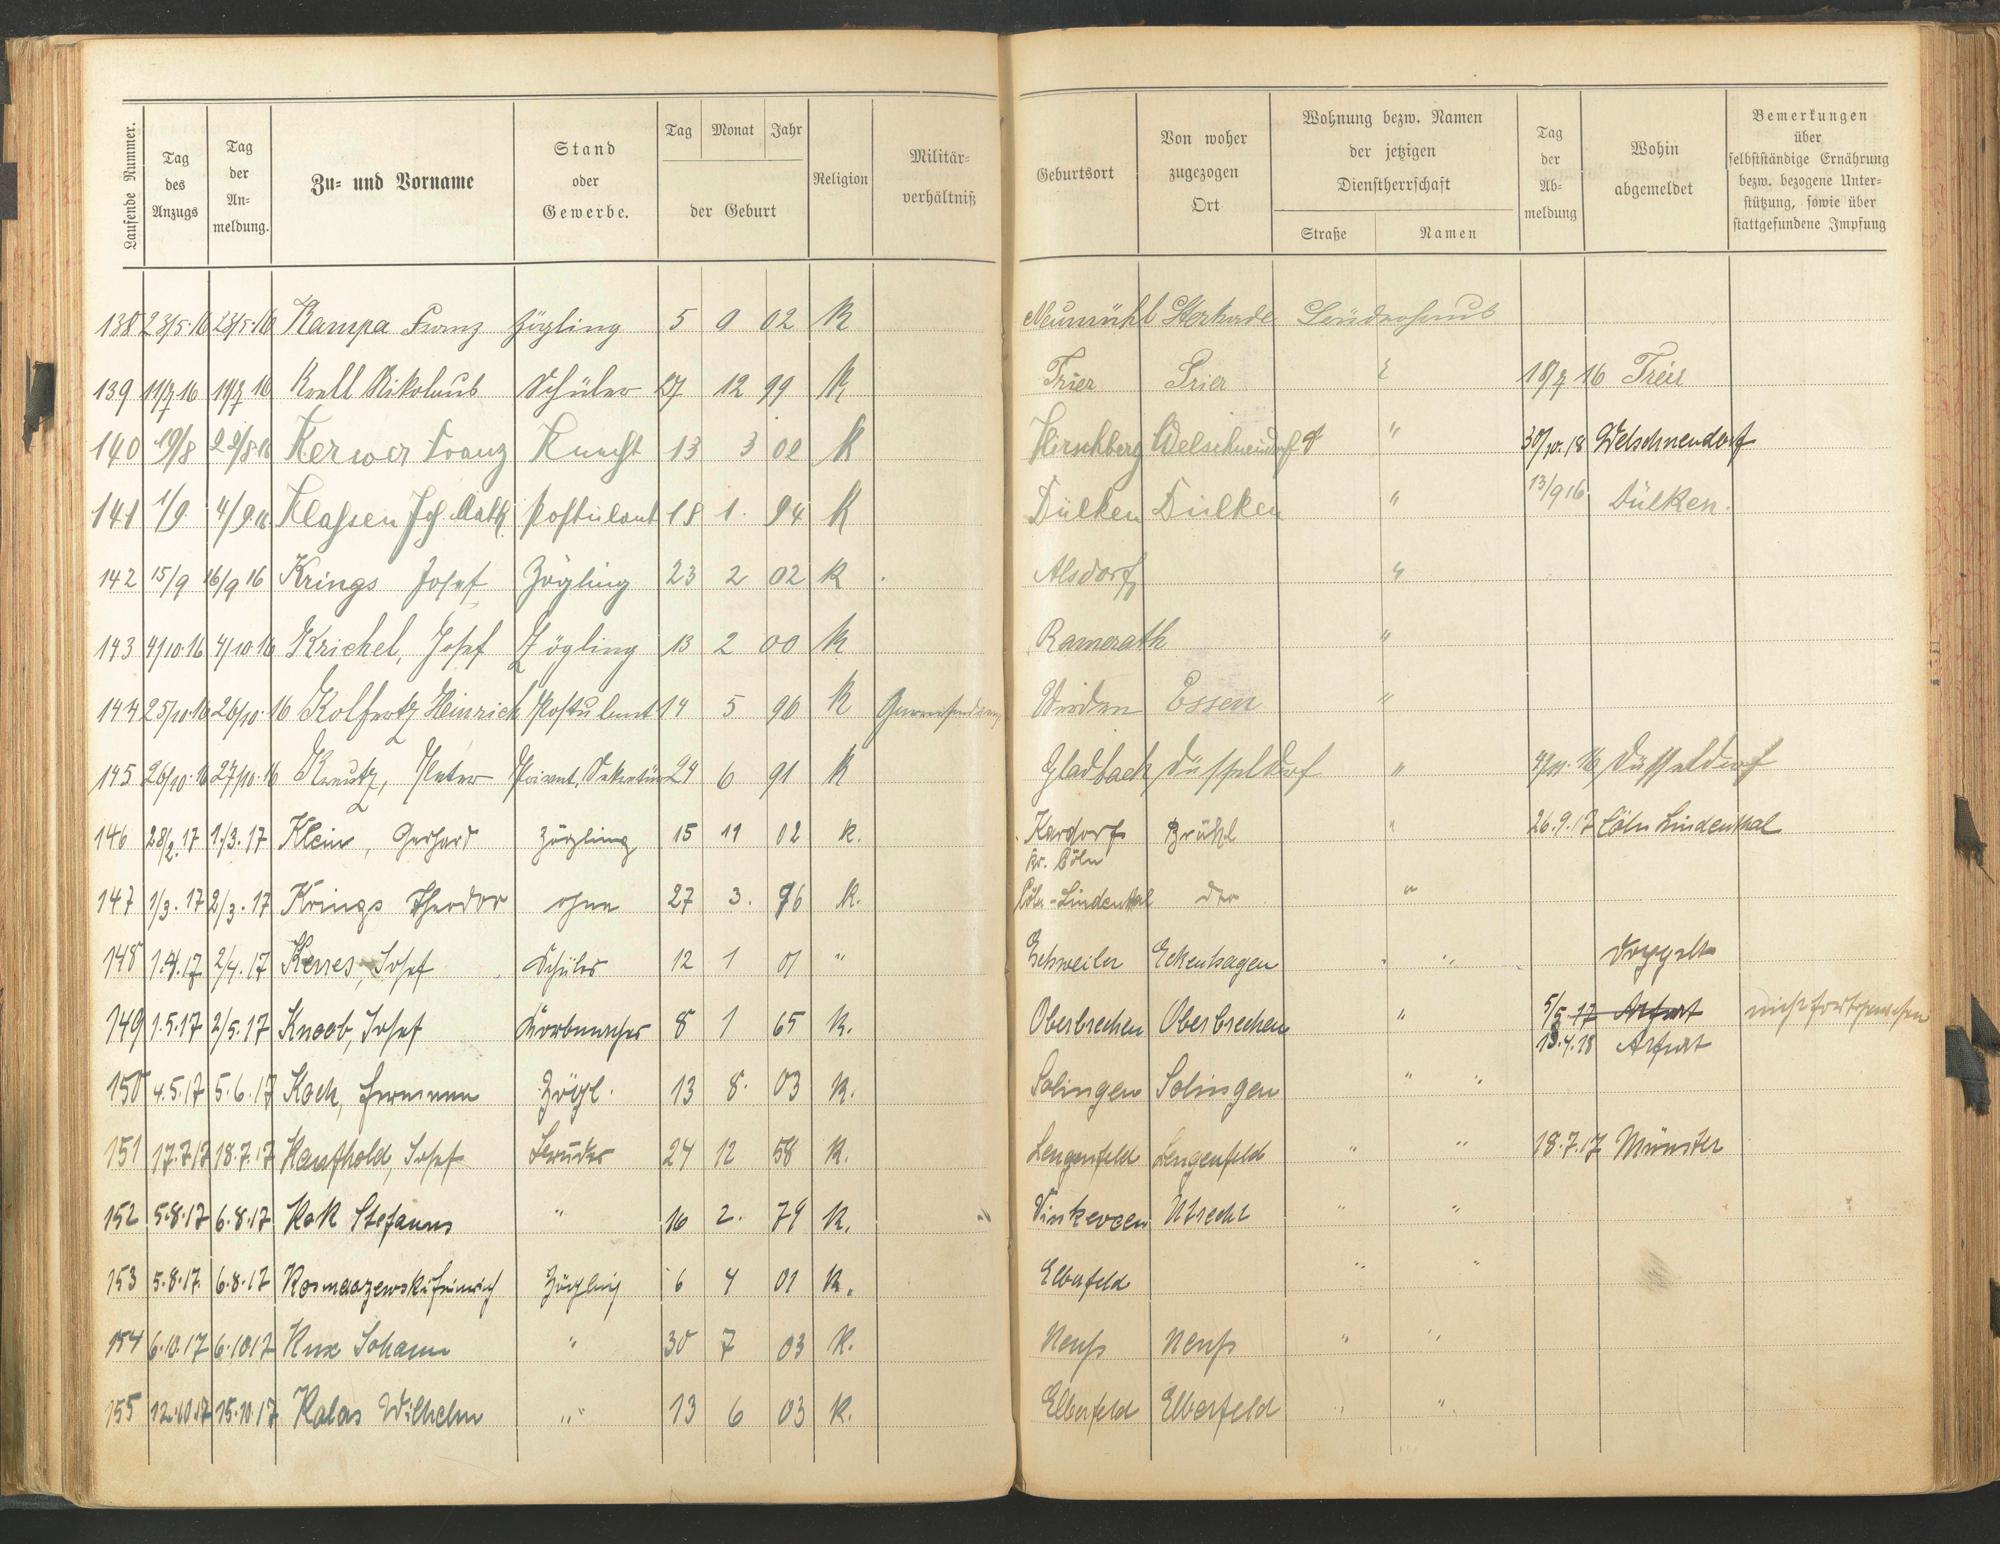 Laufende Nummer.
Tag des Anzugs
Tag der An-meldung.
Zu- und Vorname
Stand oder Gewerbe.
Tag Monat Jahr
der Geburt
Religion
Militär-verhältniß
Geburtsort
Von woher zugezogen Ort
Wohnung bezw. Namen der jetzigen Dienstherrschaft
Straße Namen
Tag der Ab-meldung
Wohin abgemeldet
Bemerkungen über selbstständige Ernährung bezw. bezogene Unter-stützung, sowie über stattgefundene Impfung
138 23/5.16 23/5.16 Kampa Franz Zögling 5 9 02 K Neumühl Sterkrade Brüderhaus
139 11/7 16 11/7 16 Krell Nikolaus Schüler 27 12 99 K Trier Trier " 18/7 16 Trier
140 19/8 22/8.16 Kerwer Franz Knecht 13 3 02 K Hirschberg Welschneudorf " 30/10.18 Welschneudorf
141 1/9 4/9 16 Klassen Jos. Math. Postulant 18 1. 94 K Dülken Dülken " 13/9 16 Dülken.
142 15/9 16/9 16 Krings Josef Zögling 23 2 02 K Alsdorf "
143 4/10.16 4/10 16 Krichel, Josef Zögling 13 2 00 K Ramerath "
144 25/10.16 26/10.16 Kolfertz Heinrich Postulant 14 5 96 K Werden Essen "
145 26/10.16 27/10.16 Kreutz, Peter Privat. Sekretär 24 6 91 K Gladbach Düsseldorf " 16 Düsseldorf
146 28/2.17 1/3.17 Klein, Gerhard Zögling 15 11 02 K. Kardorf Brühl " 26.9.17 Cöln Lindenthal
Kr. Cöln
147 1/3.17 2/3.17 Krings Theodor ohne 27 3. 96 K. Cöln-Lindenthal dto "
148 1.4.17 2/4.17 Kerres, Josef Schüler 12 1 01 " Eschweiler Eckenhagen " Doppelt
149 1.5.17 2/5.17 Knoob, Josef Korbmacher 8 1 65 K. Oberbrechen Oberbrechen " 5/5.17 Arfurt nicht fortgewesen
13.4.18 Arfurt
150 4.5.17 5.6.17 Koch, Hermann Zögl. 13 8. 03 K. Solingen Solingen " "
151 17.7.17 18.7.17 Kaufhold, Josef Bruder 24 12 58 K. Lengenfeld Lengenfeld " " 18.7.17 Münster
152 5.8.17 6.8.17 Kok Stefanus " 16 2. 79 K. Vinkeveen Utrecht " "
153 5.8.17. 6.8.17 Kosmaczewski Heinrich Zögling 6 4 01 K. Elberfeld " "
154 6.10.17 6.10 17 Kux Johann " 30 7 03 K. Neuß Neuß " "
155 12.10.17 15.10.17 Kalas Wilhelm " 13 6 03 K. Elberfeld Elberfeld " "